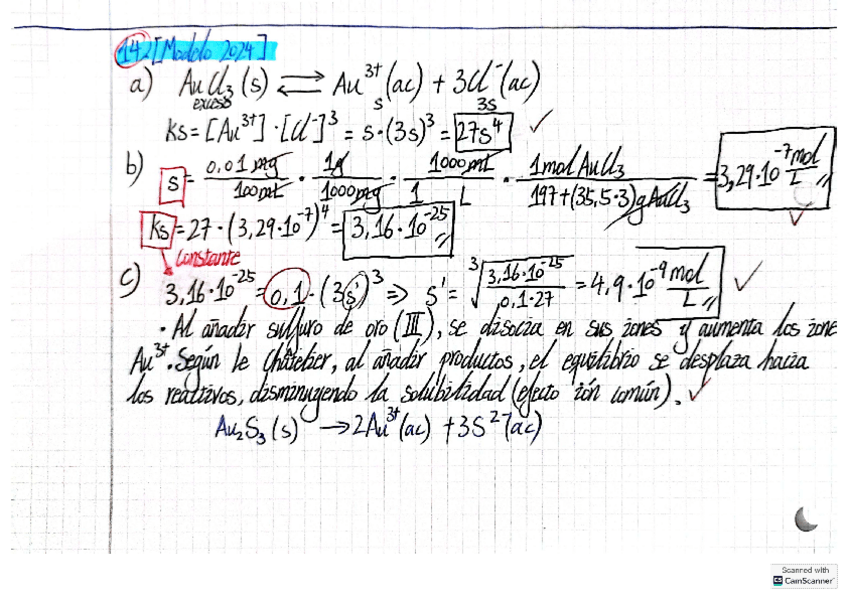 142 [Modelo 2024]
a) AuCl₃ (s) ⇌ Au³⁺ (ac) + 3Cl⁻ (ac)
exceso s 3s
Ks = [Au³⁺] · [Cl⁻]³ = s · (3s)³ = 27s⁴ ✓
b) s = 0,01 mg / 100 ml · 1g / 1000 mg · 1000 ml / 1 L · 1 mol AuCl₃ / 197 + (35,5·3) g AuCl₃ = 3,29·10⁻⁷ mol/L ✓
Ks = 27 · (3,29·10⁻⁷)⁴ = 3,16·10⁻²⁵
constante
c) 3,16·10⁻²⁵ = 0,1 · (3s')³ => s' = ³√(3,16·10⁻²⁵ / 0,1·27) = 4,9·10⁻⁹ mol/L ✓
· Al añadir sulfuro de oro (III), se disocia en sus iones y aumenta los ione
Au³⁺. Según le Châtelier, al añadir productos, el equilibrio se desplaza hacia
los reactivos, disminuyendo la solubilidad (efecto ión común). ✓
Au₂S₃ (s) → 2Au³⁺ (ac) + 3S²⁻ (ac)
Scanned with
CS CamScanner